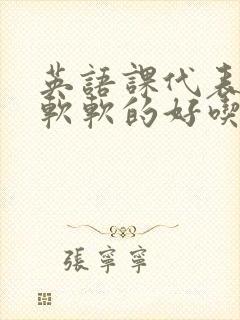 英語課代表
軟軟的好喫
張寧寧